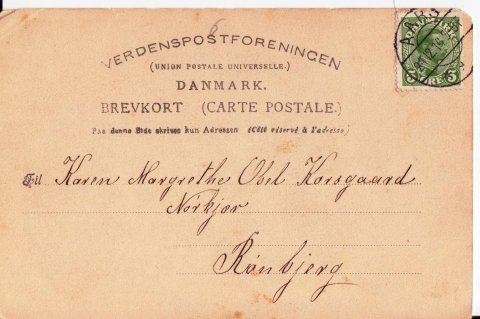 6
VERDENSPOSTFORENINGEN
(UNION POSTALE UNIVERSELLE.)
DANMARK.
BREVKORT (CARTE POSTALE.)
Paa denne Side skrives kun Adressen (Côté réservé à l'adresse)
Til Karen Margrethe Obel Korsgaard
Nørkjær
Rønbjerg
AARS
DANMARK
5 ØRE 5